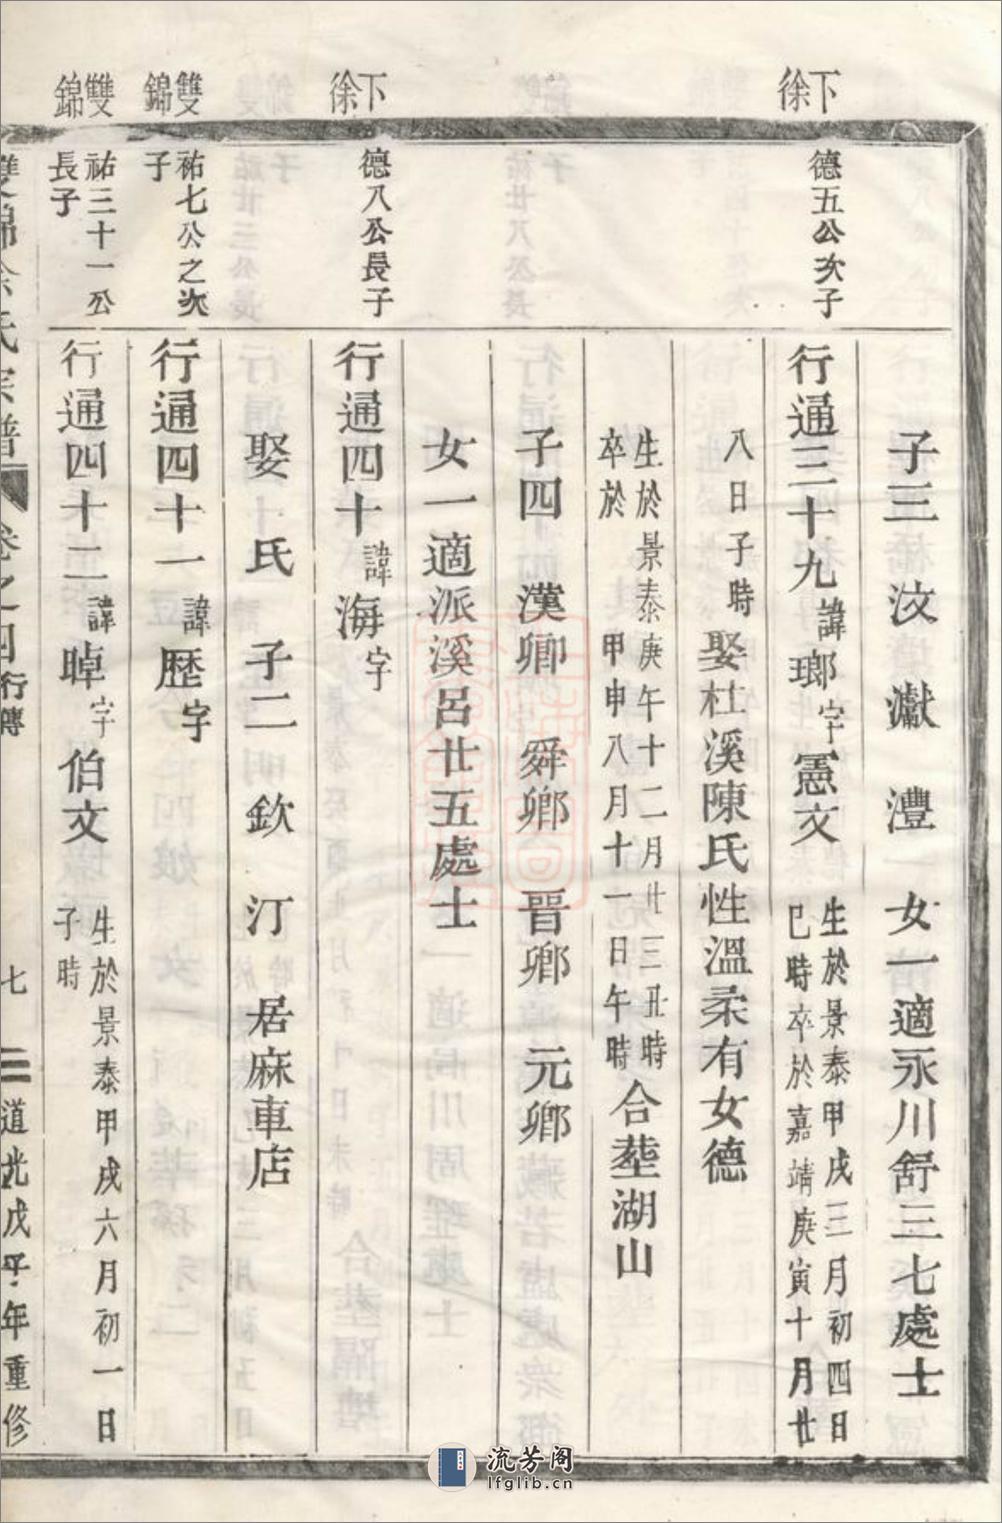 子三 汶 瀫 灃 女一適永川舒三七處士
下徐
德五公次子
行通三十九 諱瑯字憲文 生於景泰甲戌三月初四日
巳時卒於嘉靖庚寅十月廿
八日子時 娶杜溪陳氏性溫柔有女德
生於景泰庚午十二月廿三丑時
卒於 甲申八月十一日午時 合塟湖山
子四 漢卿 舜卿 晉卿 元卿
女一適派溪呂廿五處士
下徐
德八公長子
行通四十 諱海字
娶 氏 子二 欽 汀 居麻車店
雙錦
祐七公之次
子
行通四十一 諱歷字
雙錦
祐三十一公
長子
行通四十二 諱晫字伯文 生於景泰甲戌六月初一日
子時
雙錦徐氏宗譜 卷之四 行傳 七 道光戊午年重修
流芳阁
lfglib.cn